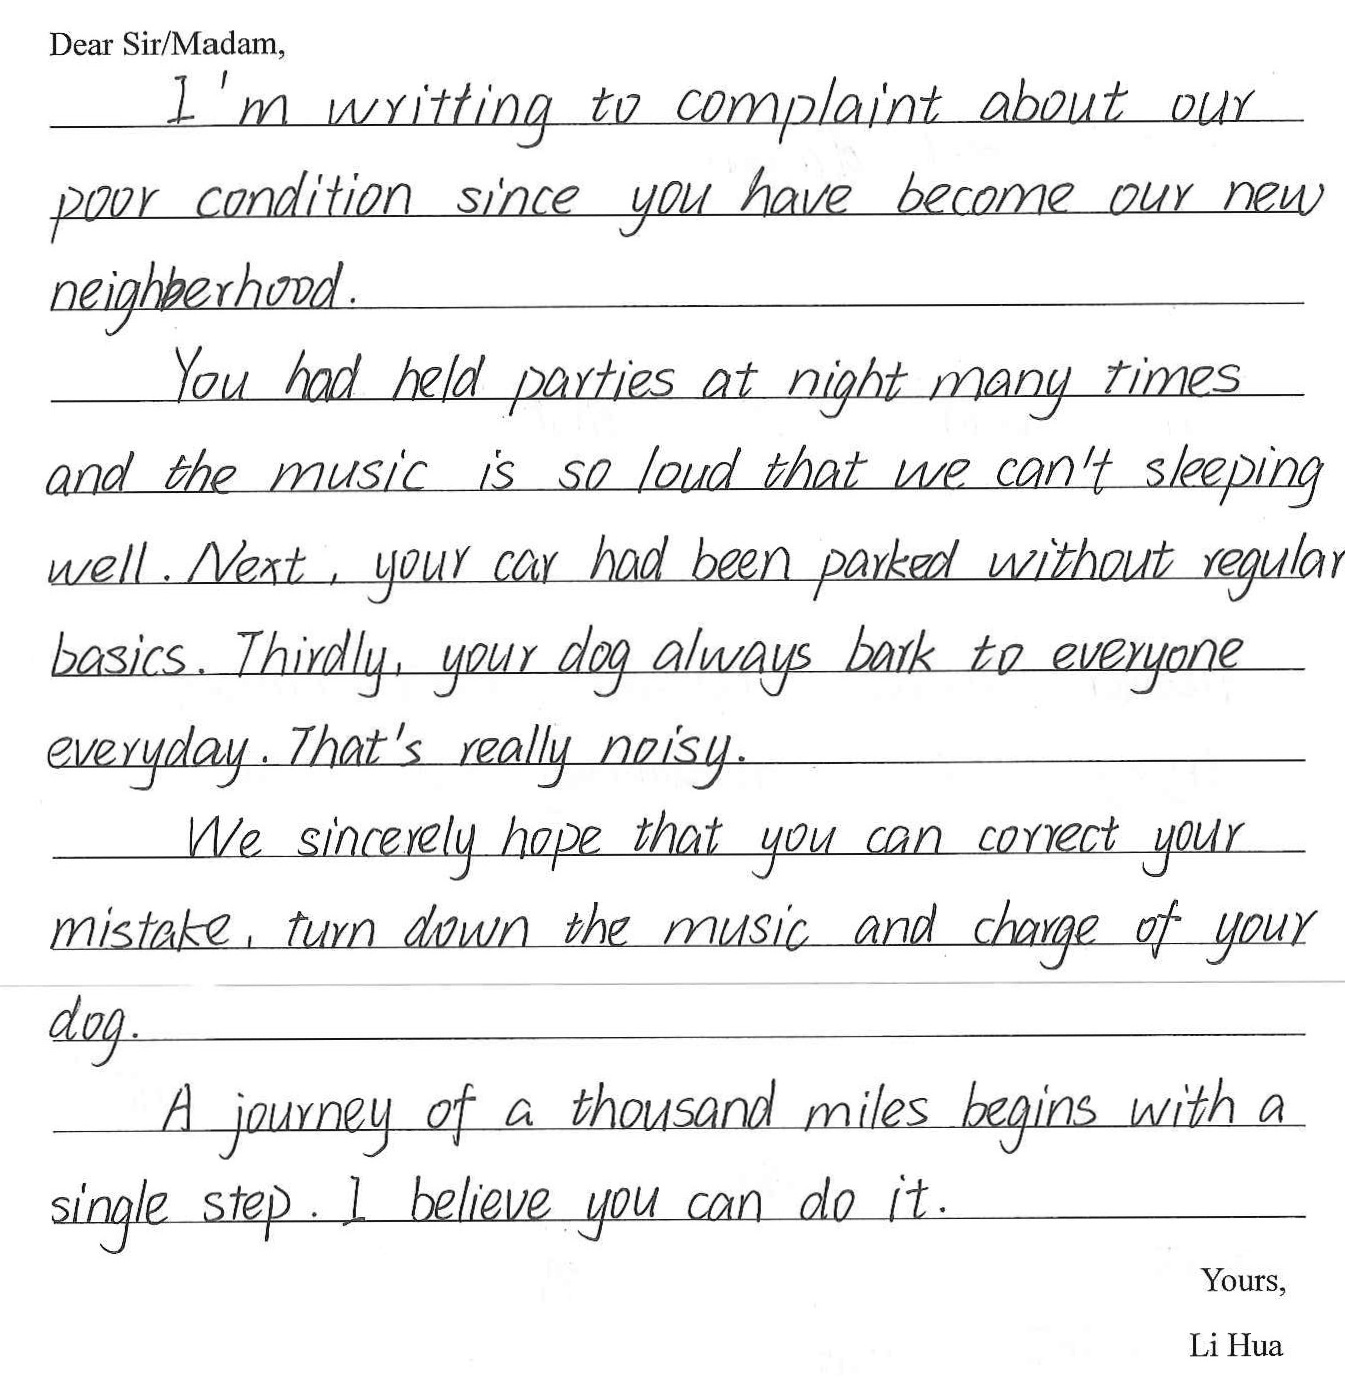 Dear Sir/Madam,
I'm writting to complaint about our
poor condition since you have become our new
neighberhood.
You had held parties at night many times
and the music is so loud that we can't sleeping
well. Next, your car had been parked without regular
basics. Thirdly, your dog always bark to everyone
everyday. That's really noisy.
We sincerely hope that you can correct your
mistake, turn down the music and charge of your
dog.
A journey of a thousand miles begins with a
single step. I believe you can do it.
Yours,
Li Hua